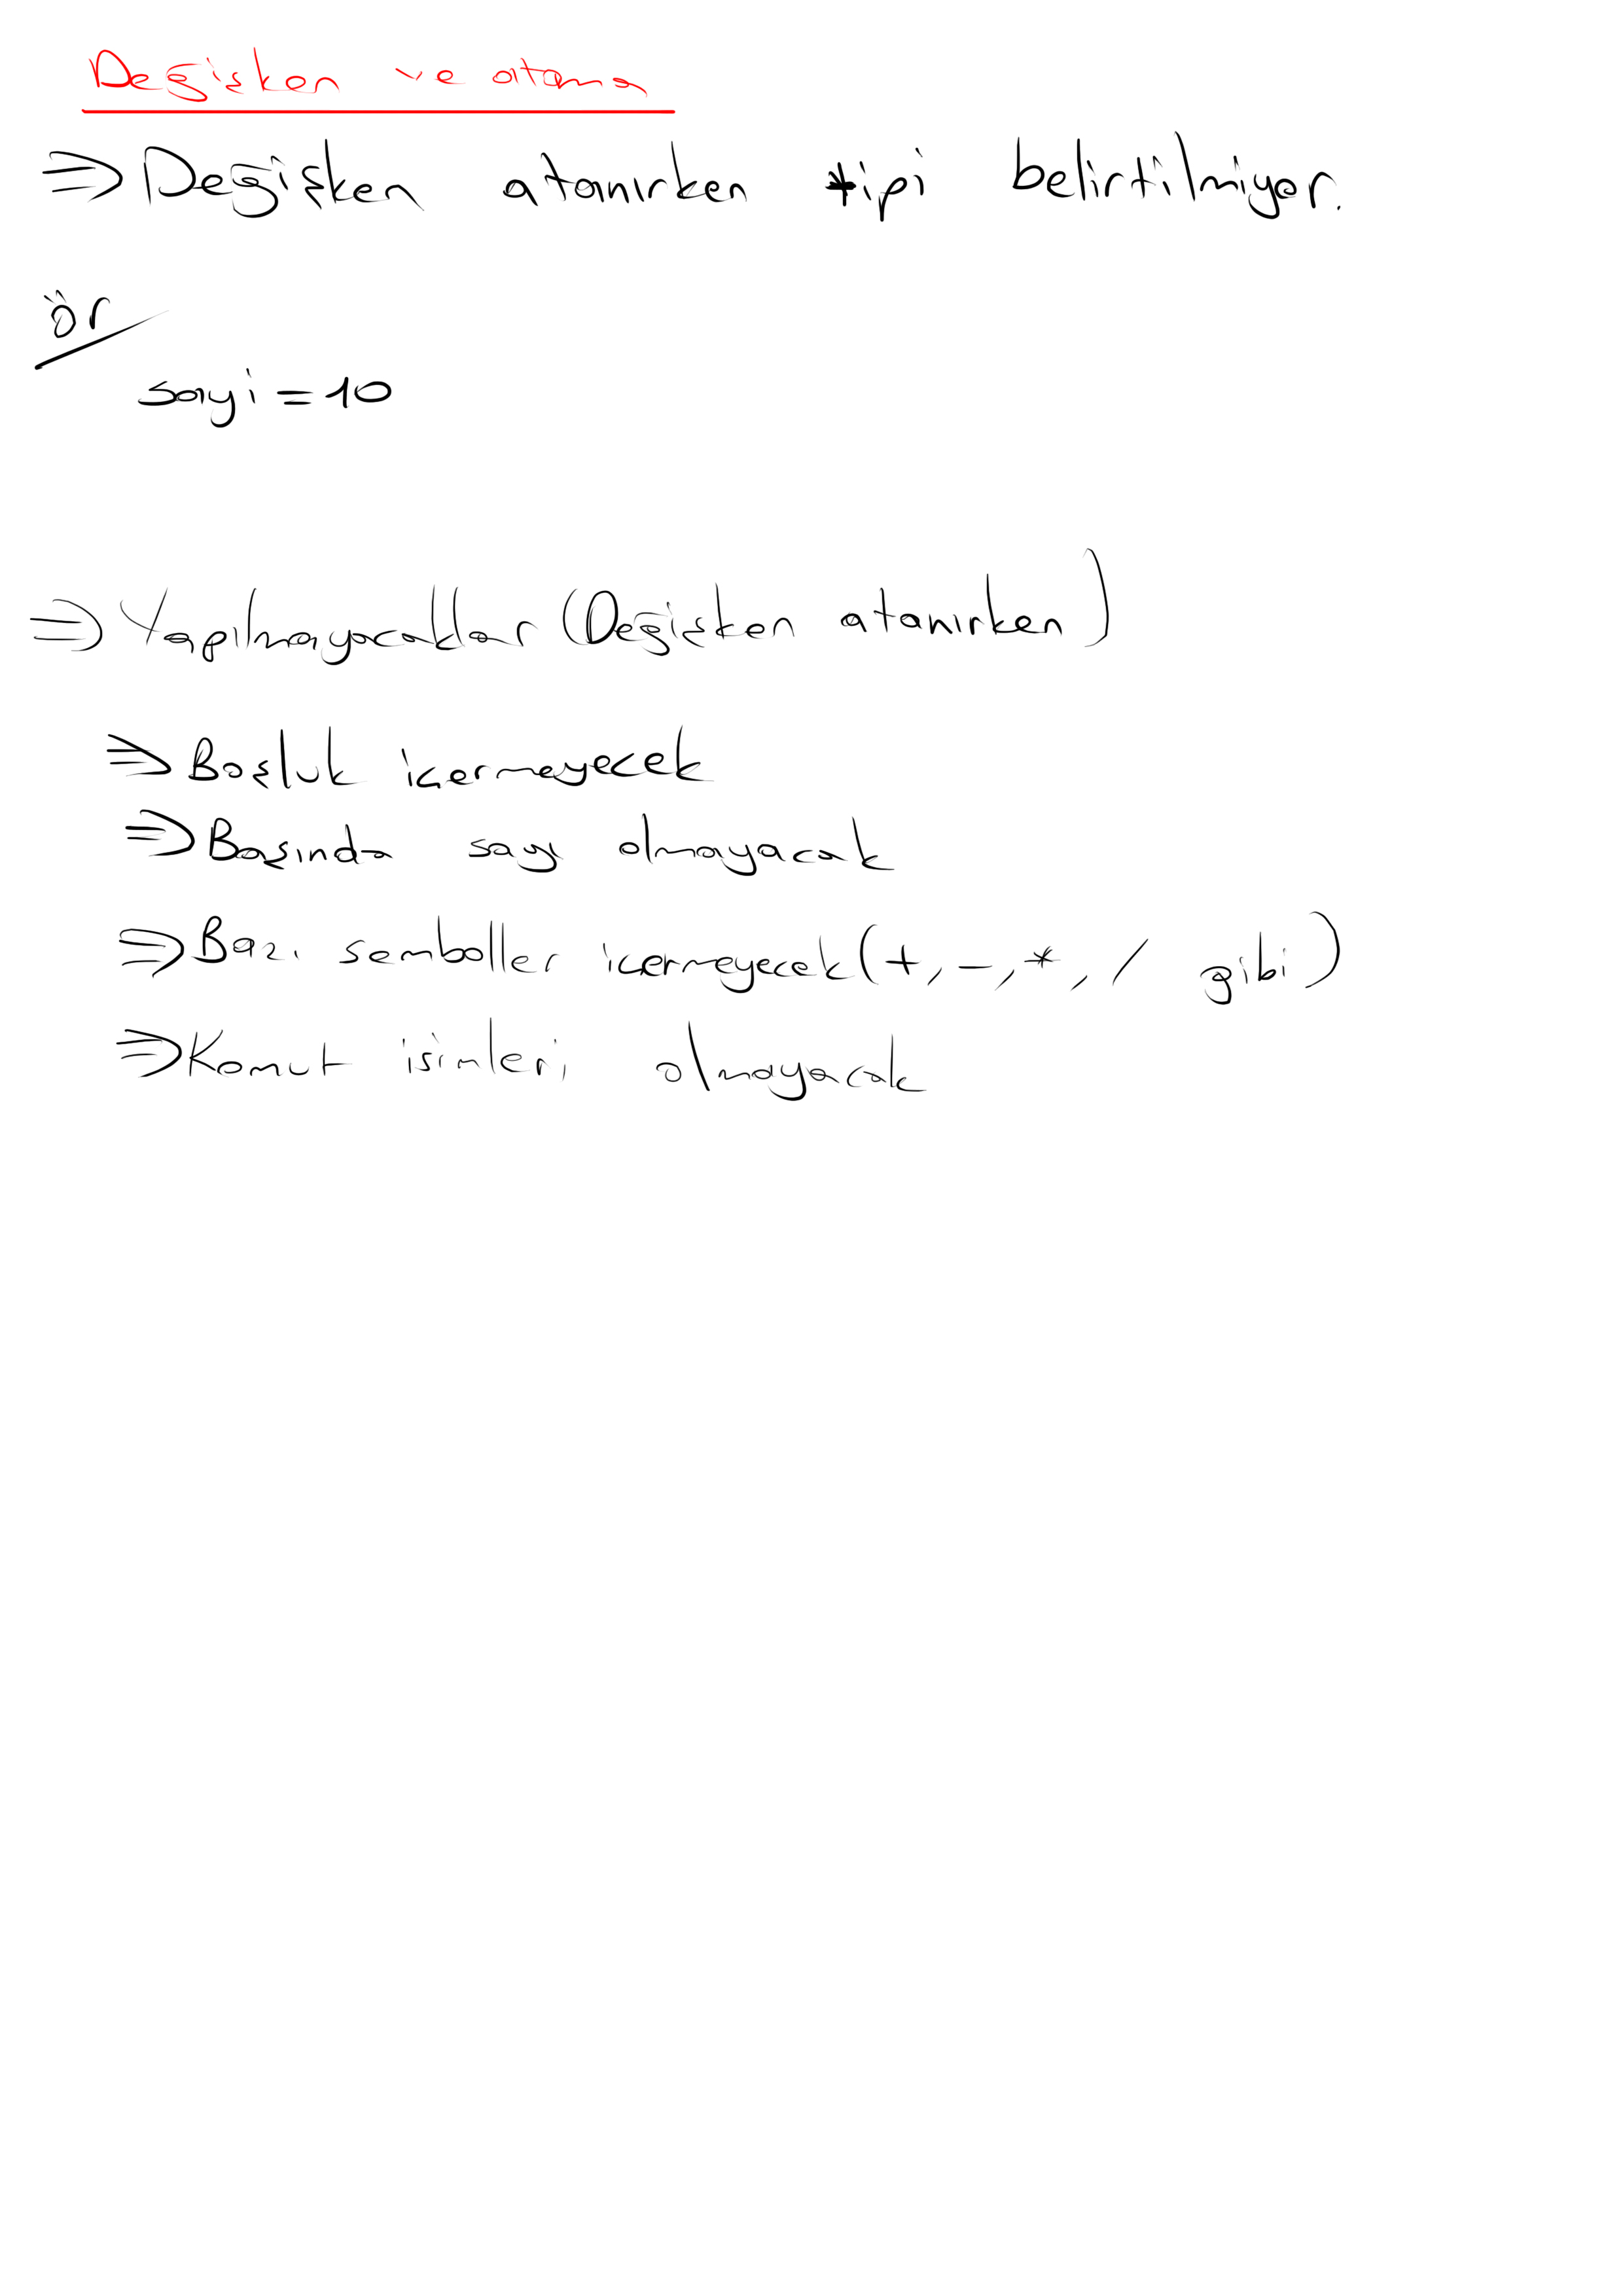 Değisken ve atama
⇒ Değisken atanırken tipi belirtilmiyor.
ör
sayi = 10
⇒ Yapılmayacaklar (Değisken atanırken)
⇒ Bosluk icermeyecek
⇒ Basında sayı olmayacak
⇒ Bazı semboller icermeyecek (+, -, *, / gibi)
⇒ Komut isimleri olmayacak